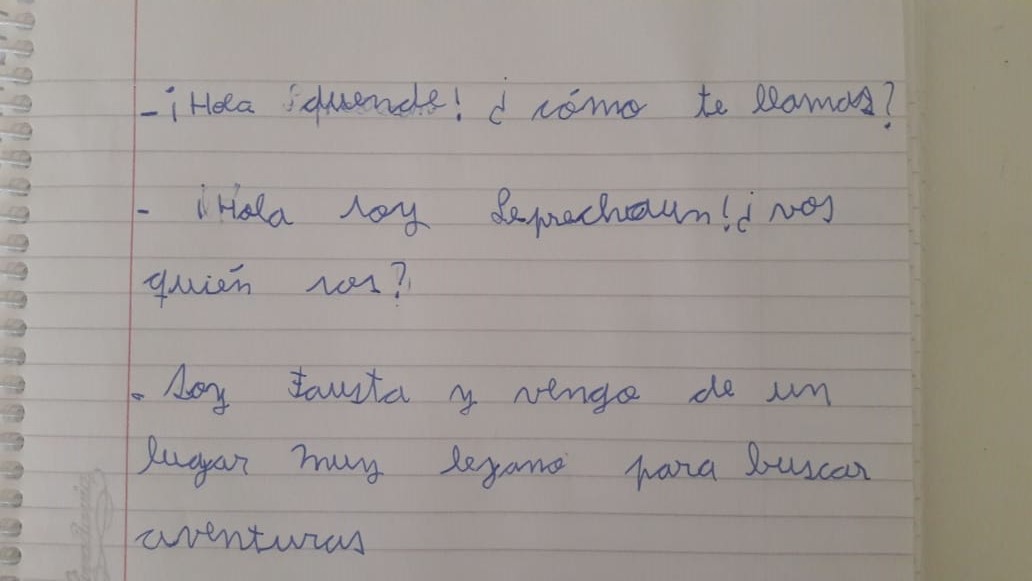 - ¡Hola duende! ¿cómo te llamas?
- ¡Hola soy Leprechaun! ¿vos
quién sos?
- Soy Fausta y vengo de un
lugar muy lejano para buscar
aventuras